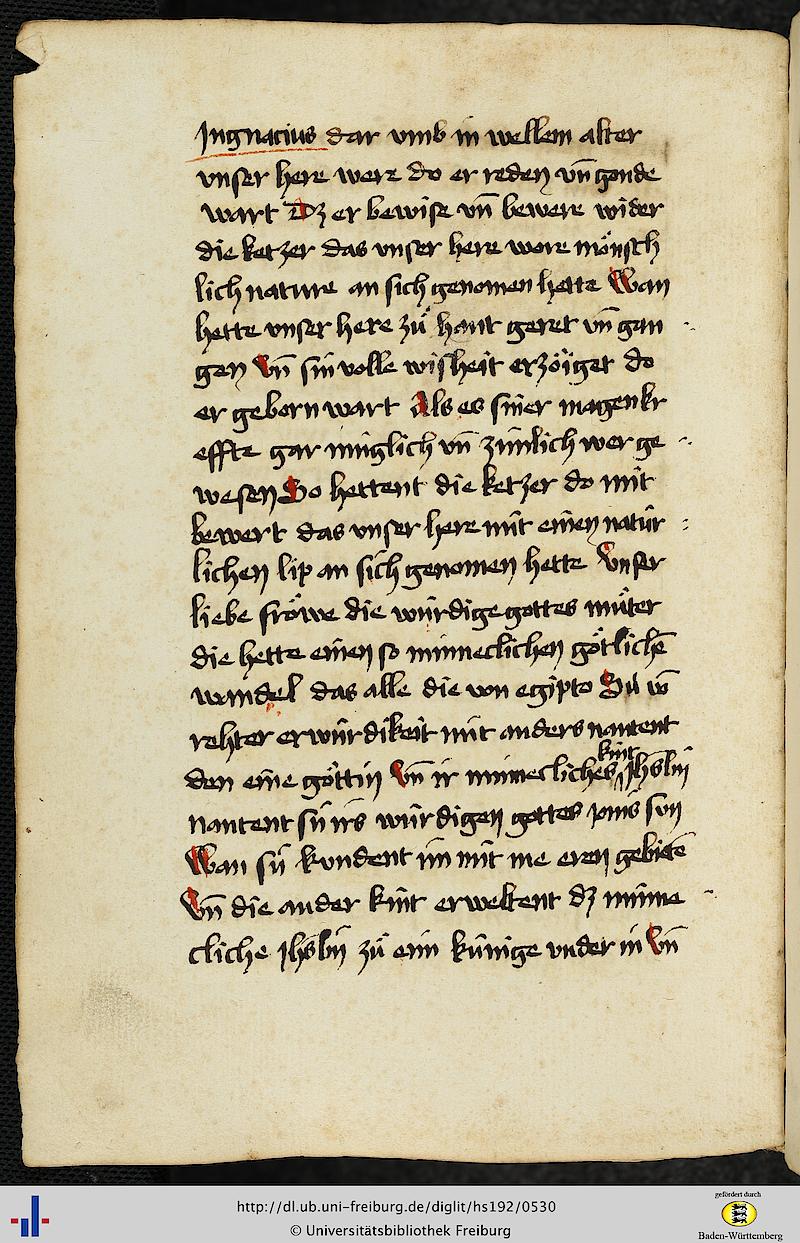 Ingnacius dar vmb in wellem alter
vnser here were do er reden vn̄ gonde
wart Dz er bewise vn̄ bewere wider
die ketzer das vnser here ware mönsch
lich nature an sich genomen hette Wan
hette vnser here zů hant geret vn̄ gan
gen Vn̄ sin volle wisheit erzöiget do
er geborn wart Als es siner magenkr
effte gar müglich vn̄ zimlich wer ge
wesen So hettent die ketzer do mit
bewert das vnser here mit einen natúr
lichen lip an sich genomen hette Vnser
liebe fröwe die würdige gottes můter
die hette einen so minneclichen götlichē
wandel das alle die von egipto Sú vō
rehter erwúrdikeit nút anders nantent
den eine göttin Vn̄ ir minnecliches kint Jhs̄lin
nantent sú irs würdigen gottes sun
Wan sú kundent im nút me eren gebietē
Vn̄ die ander kint erweltent dz minne
cliche Jhs̄lin zů eim kúnige vnder in Vn̄
http://dl.ub.uni-freiburg.de/diglit/hs192/0530
© Universitätsbibliothek Freiburg
gefördert durch
Baden-Württemberg